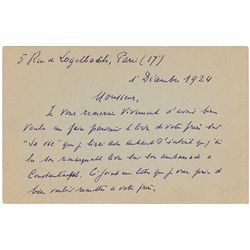 5 Rue de Logelbach, Paris (17e)
1er Décembre 1924
Monsieur,
Je vous remercie vivement d'avoir bien
voulu me faire parvenir le livre de votre frère sur
"Sa vie" que je lirai avec autant d'intérêt que j'ai
lu son remarquable livre sur son ambassade à
Constantinople. Ci-joint un lettre que je vous prie de
bien vouloir remettre à votre frère.